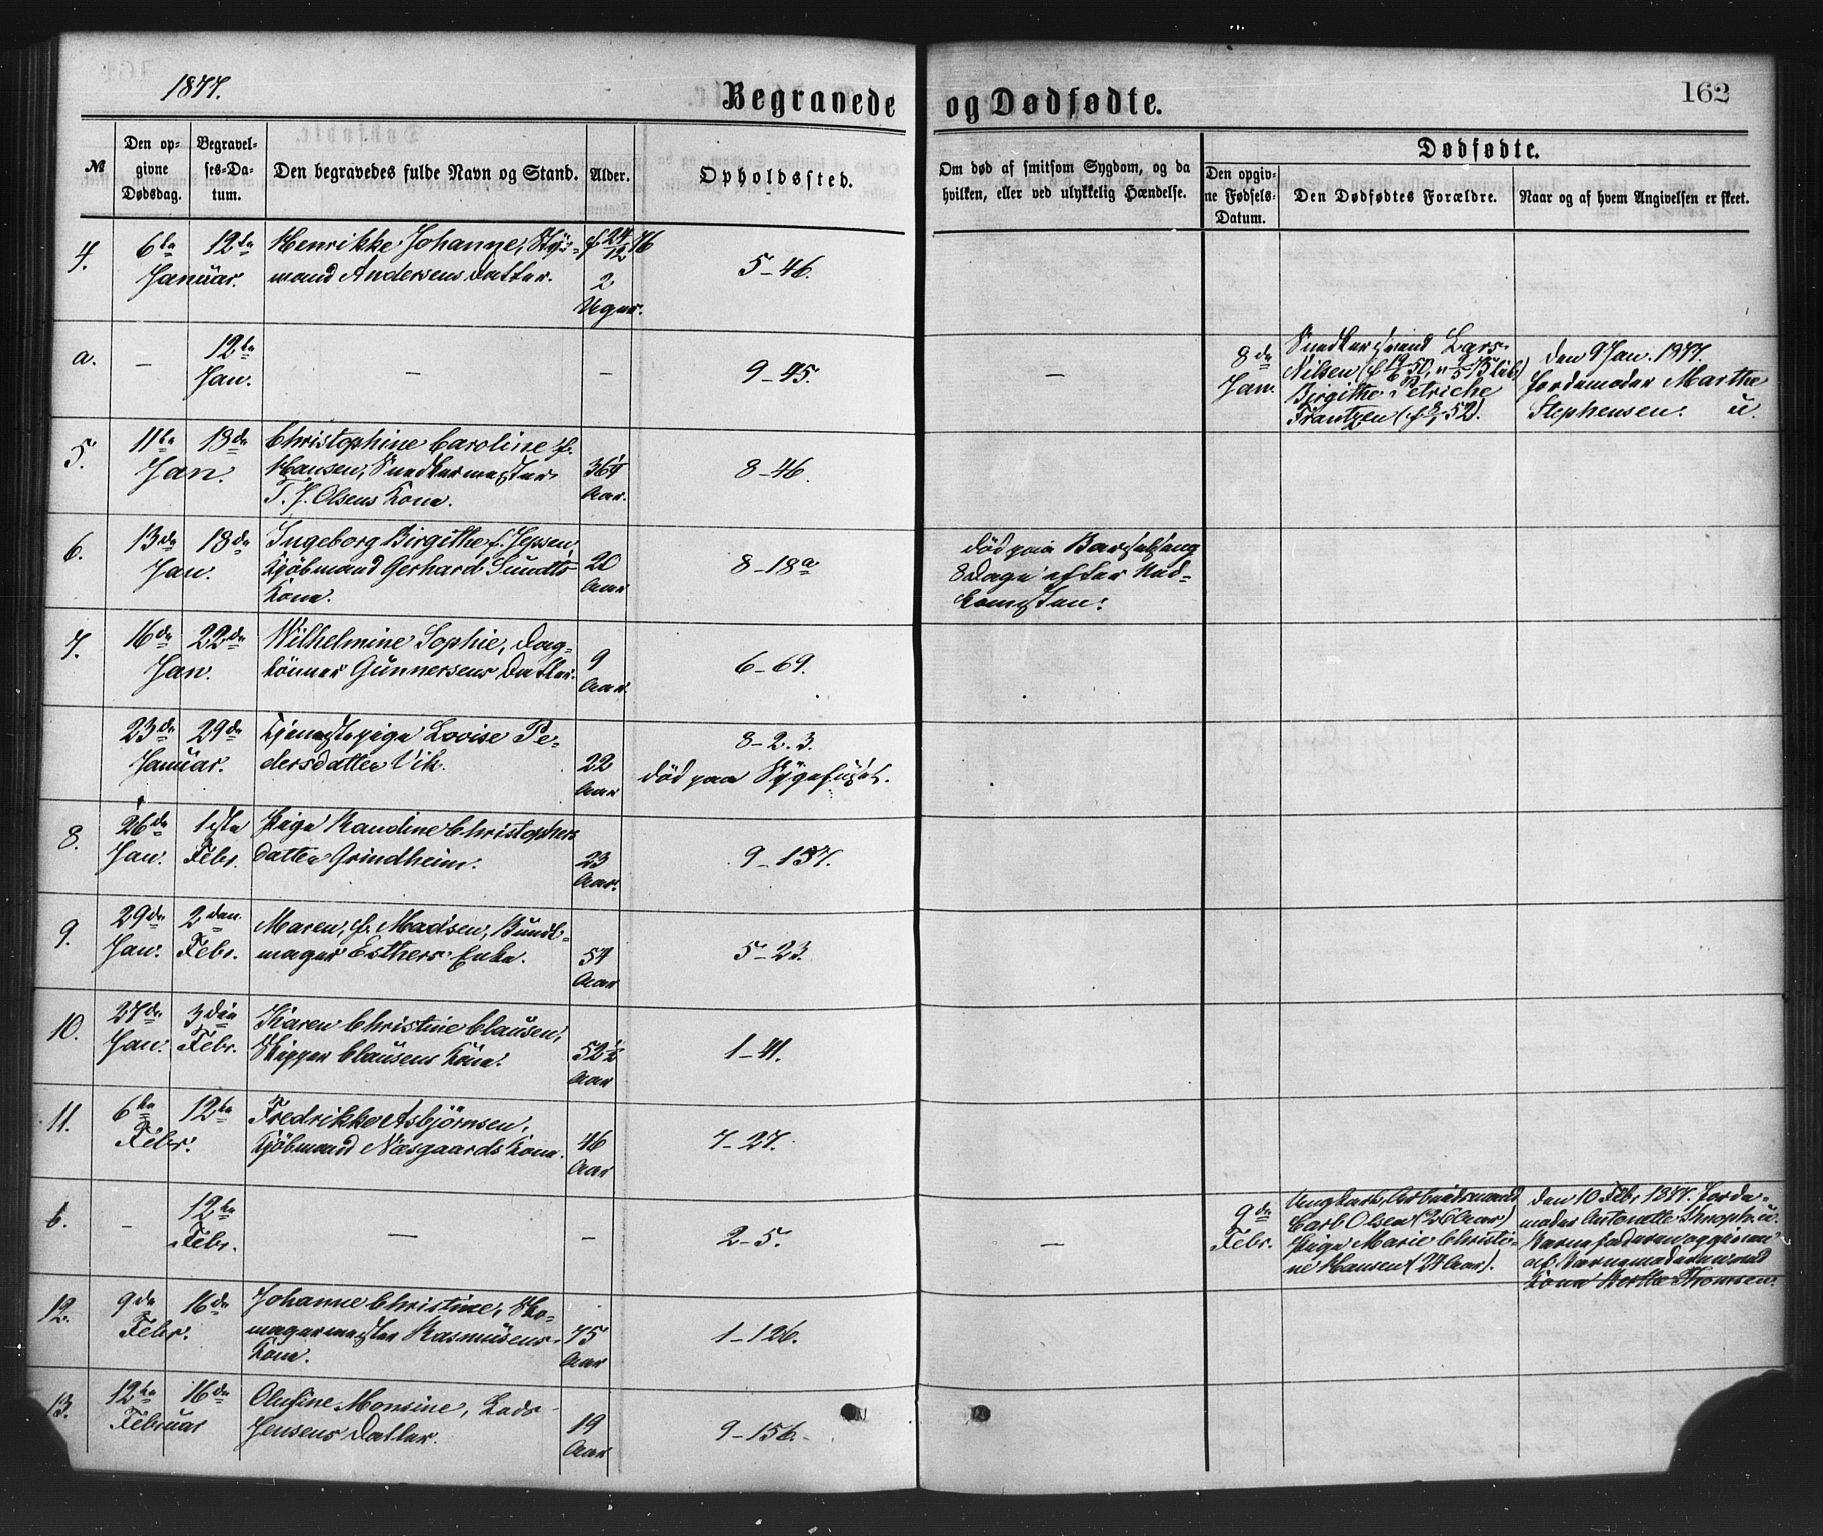 1877.
Begravede og Dødfødte.
162
№
Den opgivne Dødsdag.
Begravelses-Datum.
Den begravedes fulde Navn og Stand.
Alder.
Opholdssted.
Om død af smitsom Sygdom, og da hvilken, eller ved ulykkelig Hændelse.
Dødfødte.
Den opgivne Fødsels-Datum.
Den Dødfødtes Forældre.
Naar og af hvem Angivelsen er skeet.
4. 6te 12te Januar. Henrikke Johanne, Styr-
mand Andersens Datter. f. 24/12 76
2
Uger.
5-46.
a. – 12te Jan. – – 9-45. –
8de Jan. Snedkersvend Lars
Nilsen
Birgithe Petriche
Frantzen
den 9 Jan. 1877.
Jordemoder Marthe
Stephensen. u.
5. 11te 18de Jan. Christophine Caroline f.
Hansen, Snedkermester
T. J. Olsens Kone.
Aar.
8-46.
6. 13de 18de Jan. Ingeborg Birgithe f. Jepsen,
Kjöbmand Gerhard Sundts
Kone.
20
Aar
8-18a
död paa Barselseng
8 Dage efter Ned-
komsten.
7. 16de 22de Jan. Wilhelmine Sophie, Dag-
lönner Gunnersens Datter.
9
Aar.
6-69.
23de 29de Januar. Tjenestepige Lovise Pe-
dersdatter Vik.
22
Aar
8-2.3.
död paa Sygehuset.
8. 26de Jan. 1ste Febr. Pige Randine Christophers
datter Grindheim.
23
Aar.
9-157.
9. 29de Jan. 2den Febr. Maren, f. Madsen, Bundt-
mager Esthers Enke.
57
Aar
5-23.
10. 27de Jan. 3die Febr. Karen Christine Clausen,
Skipper Clausens Kone.
52½
Aar
1-41.
11. 6te 12te Febr. Fredrikke Asbjörnsen,
Kjöbmand Næsgaards Kone.
46
Aar
7-27.
b. – 12te Febr. – – 2-5. –
9de Febr. Ungkarl, Arbeidsmand
Carl Olsen (26 Aar)
Pige Marie Christi-
ne Hansen (27 Aar).
den 10 Febr 1877. Jorde-
moder Antonette
Barnefaderen opgiven
af Barnemoderen ved
Kone Thomsen.
12. 9de 16de Febr. Johanne Christine, Sko-
magermester Rasmusens
Kone.
75
Aar
1-126.
13. 12te 16de Februar Olufine Monsine, Lods
Jensens Datter.
19
Aar
9-156.